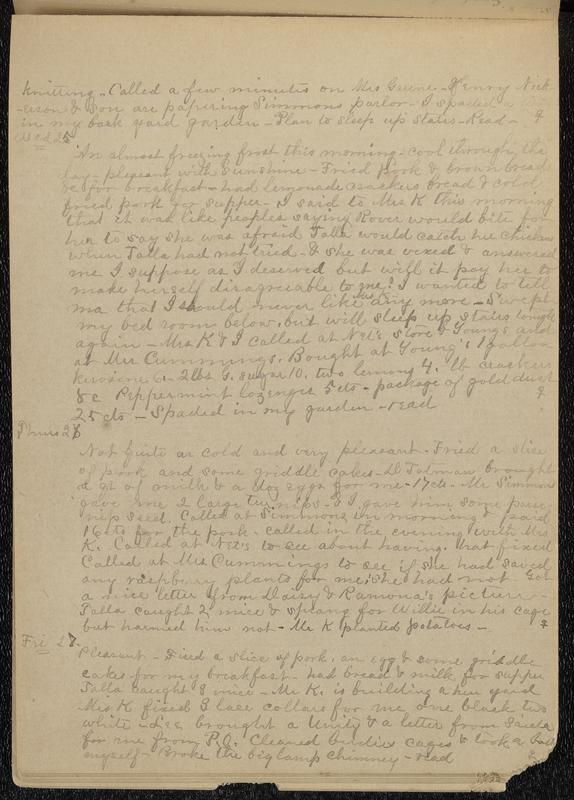 knitting - Called a few minutes on Mrs Greene - Henry Nick-
-erson & son are papering Simmons parlor - I spaded a
in my back yard garden - Plan to sleep up stairs - Read - ♀
Wed 25
An almost freezing frost this morning - cool through the
day - pleasant with sunshine - Fried Pork & brown bread
for breakfast - had lemonade crackers bread & cold
fried pork for supper - I said to Mrs K this morning
that it was like peoples saying Rover would bite for
her to say she was afraid Talla would catch her chicken
when Talla had not tried - & she was vexed & answered
me I suppose as I deserved but will it pay her to
make herself disagreeable to me? I wanted to tell
ma that I should never like her any more - Swept
my bed room below, but will sleep up stairs tonight
again - Mrs K & I called at Net's store & Youngs and
at Mrs Cummings. Bought at Young's 1 gallon
kerosine 2 lbs G. sugar 10. two lemons 4. lb crackers
8c Peppermint lozenges 5 cts - package of gold dust
25 cts - Spaded in my garden - read ♀
Thurs 26
Not quite as cold and very pleasant - Fried a slice
of pork and some griddle cakes - D Tolman brought
a qt of milk & a doz eggs for me - 17 cts - Mr Simmons
gave me 2 large turnips - & I gave him some pars-
nip seed. Called at Simmons in morning & paid
16 cts for the pork - called in the evening with Mrs
K. Called at Net's to see about having hat fixed
Called at Mrs Cummings to see if she had saved
any raspberry plants for me, she had not Got
a nice letter from Daisy & Ramona's picture -
Talla caught 2 mice & sprang for Willie in his cage
but harmed him not - Mr K planted potatoes - ♀
Fri 27.
Pleasant - Fried a slice of pork, an egg & some griddle
cakes for my breakfast - had bread & milk for supper
Talla caught 8 mice - Mr K. is building a hen yard
Mrs K fixed 3 lace collars for me, one black two
white - brought a Unity & a letter from
for me from P.O. Cleaned birdies cages & took a bath
myself - Broke the big lamp chimney - read